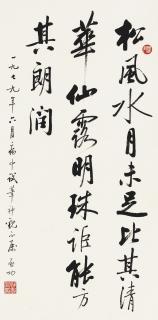 松風水月未足比其清
華仙露明珠詎能方
其朗潤
一九七九年六月病中試筆 啟功